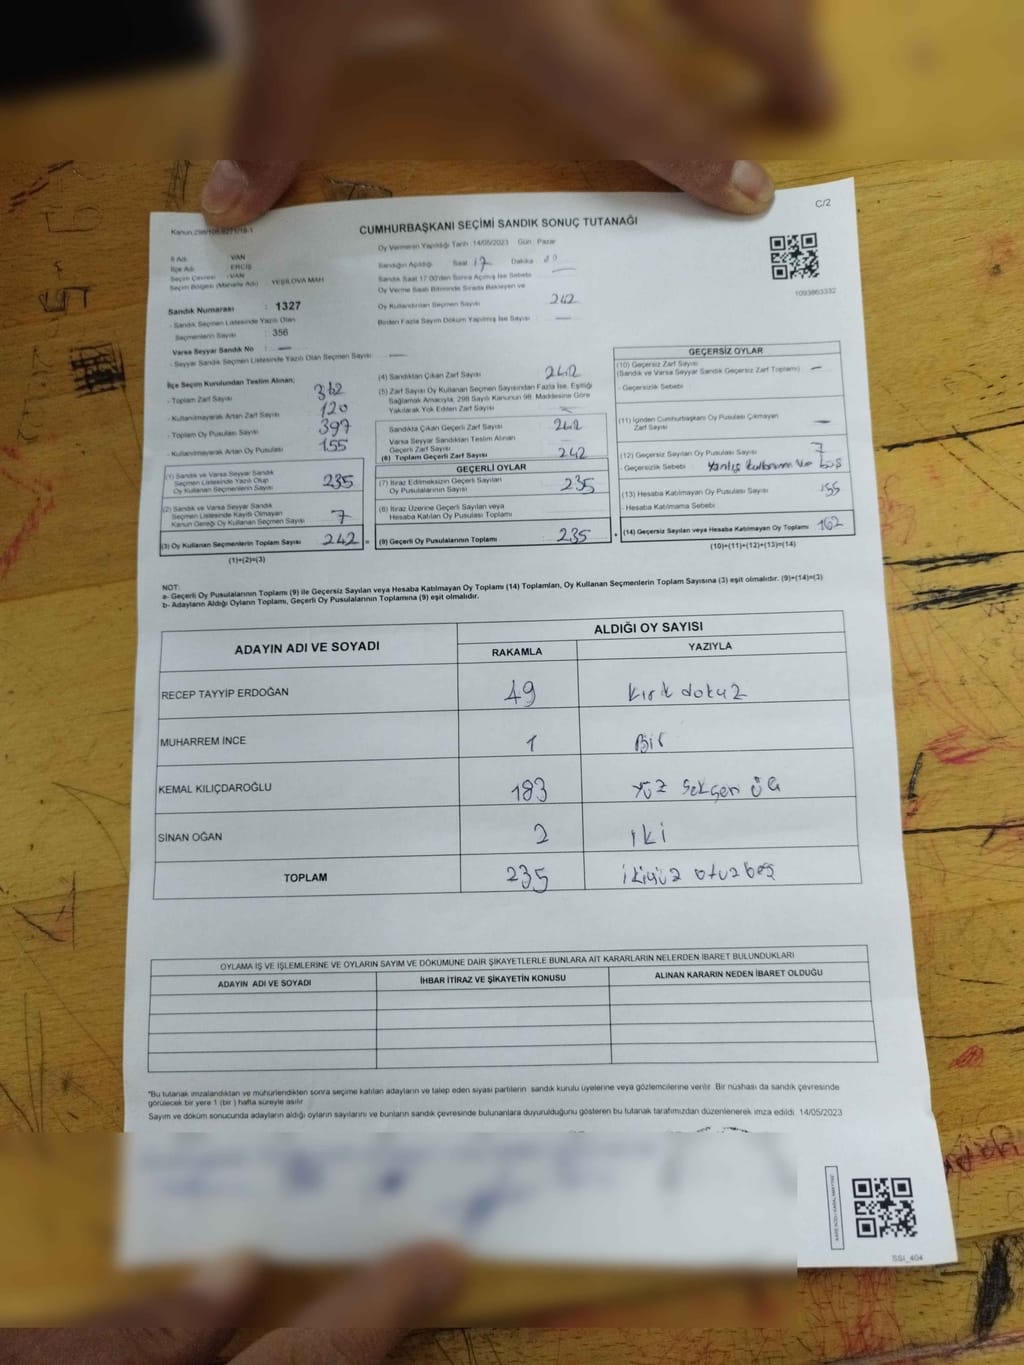 C/2
CUMHURBAŞKANI SEÇİMİ SANDIK SONUÇ TUTANAĞI
İl Adı : VAN
İlçe Adı : ERCİŞ
Seçim Çevresi : VAN
Seçim Bölgesi (Mahalle Adı) : YEŞİLOVA MAH
Sandık Numarası : 1327
- Sandık Seçmen Listesinde Yazılı Olan
Seçmenlerin Sayısı : 356
Varsa Seyyar Sandık No : —
- Seyyar Sandık Seçmen Listesinde Yazılı Olan Seçmen Sayısı: —
Oy Vermenin Yapıldığı Tarih :14/05/2023 Gün : Pazar
Sandığın Açıldığı Saat 17 Dakika
Sandık Saat 17:00'den Sonra Açılmış İse Sebebi —
Oy Verme Saati Bitiminde Sırada Bekleyen ve
Oy Kullandırılan Seçmen Sayısı 242
Birden Fazla Sayım Döküm Yapılmış İse Sayısı : —
1093863332
İlçe Seçim Kurulundan Teslim Alınan;
- Toplam Zarf Sayısı : 362
- Kullanılmayarak Artan Zarf Sayısı : 120
- Toplam Oy Pusulası Sayısı : 397
- Kullanılmayarak Artan Oy Pusulası : 155
(1) Sandık ve Varsa Seyyar Sandık
Seçmen Listesinde Yazılı Olup
Oy Kullanan Seçmenlerin Sayısı : 235
(2) Sandık ve Varsa Seyyar Sandık
Seçmen Listesinde Kayıtlı Olmayan
Kanun Gereği Oy Kullanan Seçmen Sayısı : 7
(3) Oy Kullanan Seçmenlerin Toplam Sayısı : 242 =
(1)+(2)=(3)
(4) Sandıktan Çıkan Zarf Sayısı : 242
(5) Zarf Sayısı Oy Kullanan Seçmen Sayısından Fazla İse, Eşitliği
Sağlamak Amacıyla, 298 Sayılı Kanunun 98. Maddesine Göre
Yakılarak Yok Edilen Zarf Sayısı : —
Sandıkta Çıkan Geçerli Zarf Sayısı : 242
Varsa Seyyar Sandıktan Teslim Alınan
Geçerli Zarf Sayısı :
(6) Toplam Geçerli Zarf Sayısı : 242
GEÇERLİ OYLAR
(7) İtiraz Edilmeksizin Geçerli Sayılan
Oy Pusulalarının Sayısı : 235
(8) İtiraz Üzerine Geçerli Sayılan veya
Hesaba Katılan Oy Pusulası Toplamı :
(9) Geçerli Oy Pusulalarının Toplamı : 235 +
GEÇERSİZ OYLAR
(10) Geçersiz Zarf Sayısı
(Sandık ve Varsa Seyyar Sandık Geçersiz Zarf Toplamı) : —
- Geçersizlik Sebebi :
(11) İçinden Cumhurbaşkanı Oy Pusulası Çıkmayan
Zarf Sayısı : —
(12) Geçersiz Sayılan Oy Pusulası Sayısı : 7
- Geçersizlik Sebebi : Yanlış kullanım ve boş
(13) Hesaba Katılmayan Oy Pusulası Sayısı : 155
- Hesaba Katılmama Sebebi :
(14) Geçersiz Sayılan veya Hesaba Katılmayan Oy Toplamı : 162
(10)+(11)+(12)+(13)=(14)
NOT:
a- Geçerli Oy Pusulalarının Toplamı (9) ile Geçersiz Sayılan veya Hesaba Katılmayan Oy Toplamı (14) Toplamları, Oy Kullanan Seçmenlerin Toplam Sayısına (3) eşit olmalıdır. (9)+(14)=(3)
b- Adayların Aldığı Oyların Toplamı, Geçerli Oy Pusulalarının Toplamına (9) eşit olmalıdır.
ADAYIN ADI VE SOYADI
ALDIĞI OY SAYISI
RAKAMLA YAZIYLA
RECEP TAYYİP ERDOĞAN 49 kırk dokuz
MUHARREM İNCE 1 Bir
KEMAL KILIÇDAROĞLU 183 Yüz seksen üç
SİNAN OĞAN 2 iki
TOPLAM 235 ikiyüz otuzbeş
OYLAMA İŞ VE İŞLEMLERİNE VE OYLARIN SAYIM VE DÖKÜMÜNE DAİR ŞİKAYETLERLE BUNLARA AİT KARARLARIN NELERDEN İBARET BULUNDUKLARI
ADAYIN ADI VE SOYADI İHBAR İTİRAZ VE ŞİKAYETİN KONUSU ALINAN KARARIN NEDEN İBARET OLDUĞU
*Bu tutanak imzalandıktan ve mühürlendikten sonra seçime katılan adayların ve talep eden siyasi partilerin sandık kurulu üyelerine veya gözlemcilerine verilir. Bir nüshası da sandık çevresinde
görülecek bir yere 1 (bir) hafta süreyle asılır.
Sayım ve döküm sonucunda adayların aldığı oyların sayılarını ve bunların sandık çevresinde bulunanlara duyurulduğunu gösteren bu tutanak tarafımızdan düzenlenerek imza edildi. 14/05/2023
SSI_404